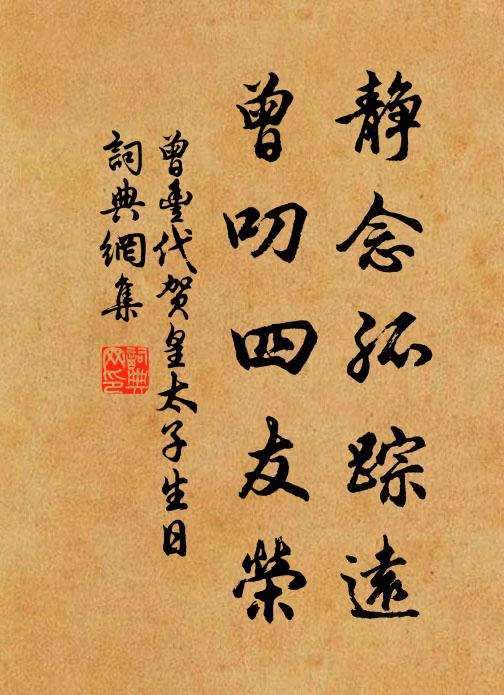 静念孤踪遠
曾叨四友榮
曾豐代賀皇太子生日
詞典網集
詞典
网印